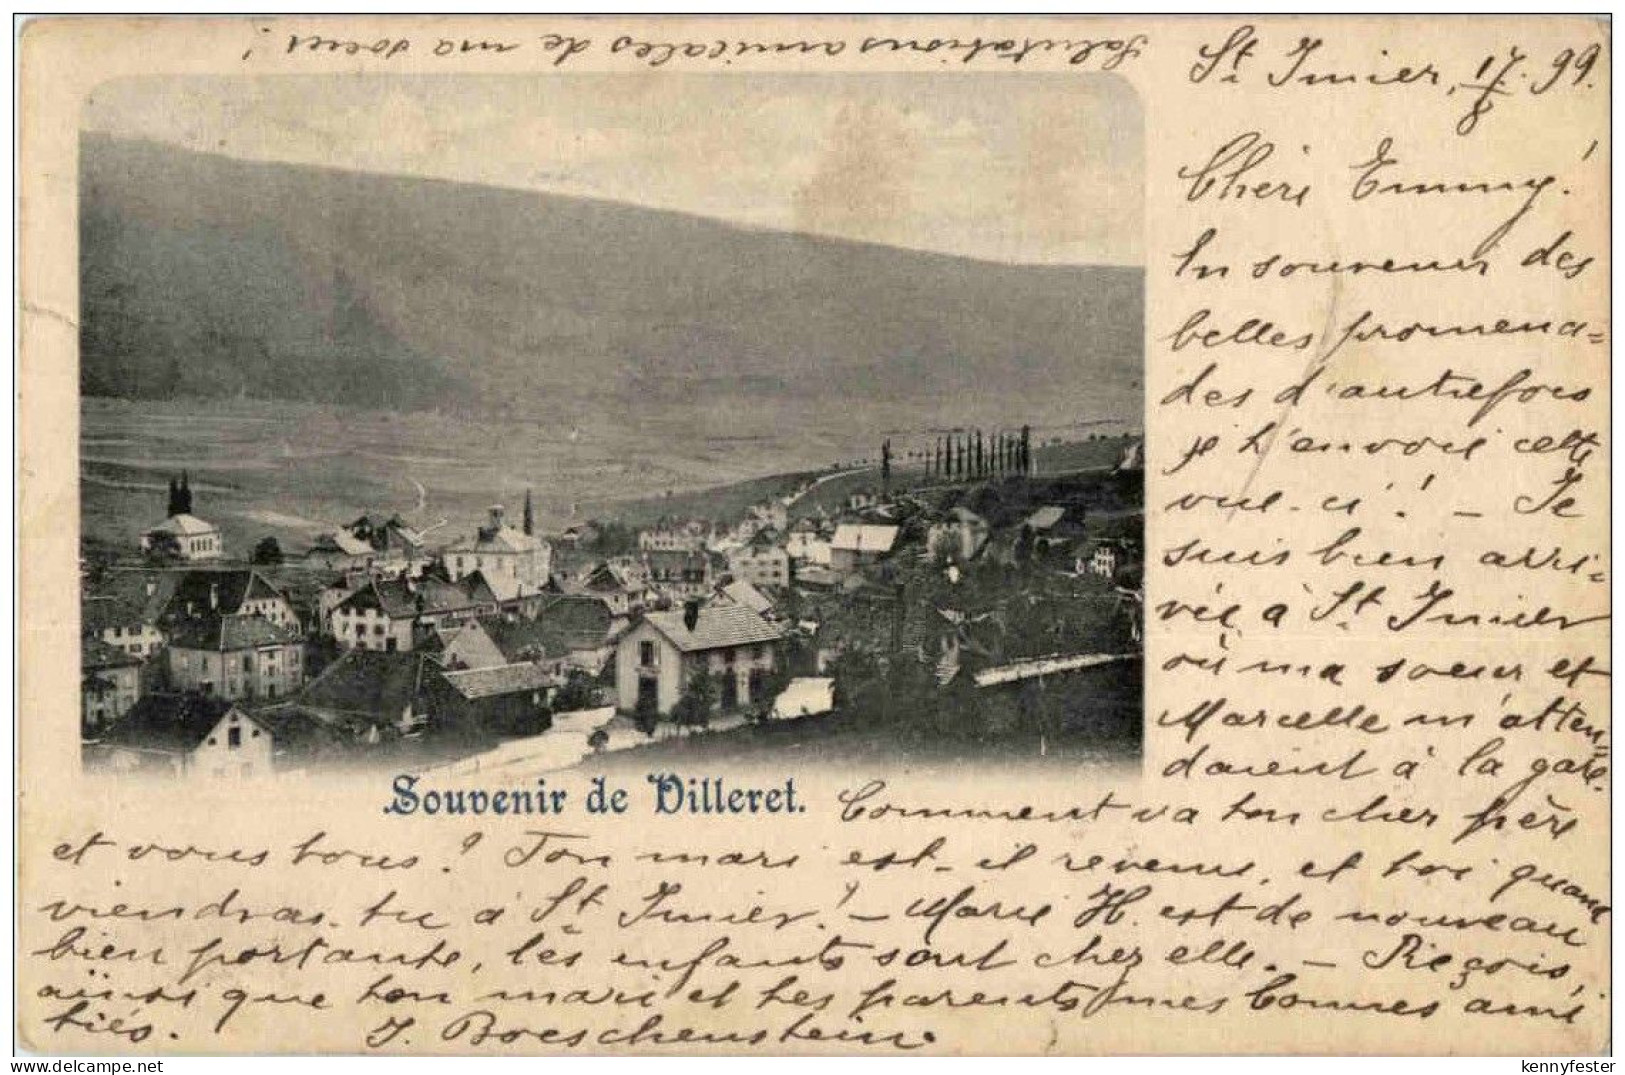 St. Imier, 17/8. 99.
Chère Emmy!
En souvenir des
belles promena=
des d'autrefois
je t'envoie cette
vue-ci! – Je
suis bien arri=
vée à St. Imier
où ma soeur et
Marcelle m'atten=
daient à la gare.
Souvenir de Villeret.
Comment va ton cher père
et vous tous? Ton mari est-il revenu, et toi quand
viendras-tu à St. Imier? – Marie H. est de nouveau
bien portante, les enfants sont chez elle. – Reçois,
ainsi que ton mari et tes parents mes bonnes ami
tiés. J. Boeschenstein.
Salutations amicales de ma soeur!
www.delcampe.net
kennyfester